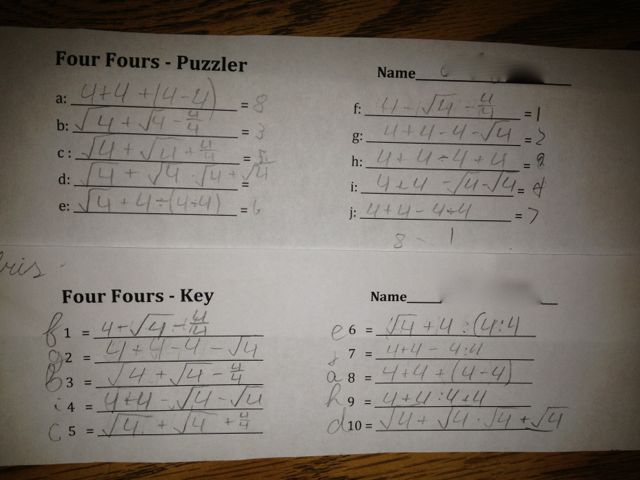 Four Fours - Puzzler
Name
a: 4+4+(4-4) = 8
b: √4+√4-4/4 = 3
c: √4+√4+4/4 = 5
d: √4+√4·√4+√4 =
e: √4+4÷(4÷4) = 6
f: 4-√4-4/4 = 1
g: 4+4-4-√4 = 2
h: 4+4÷4+4 = 9
i: 4+4-√4-√4 = 4
j: 4+4-4÷4 = 7
8 - 1
Four Fours - Key
Name
f 1 = 4-√4-4/4
g 2 = 4+4-4-√4
b 3 = √4+√4-4/4
i 4 = 4+4-√4-√4
c 5 = √4+√4+4/4
e 6 = √4+4:(4:4
j 7 = 4+4-4:4
a 8 = 4+4+(4-4)
h 9 = 4+4:4+4
d 10 = √4+√4·√4+√4